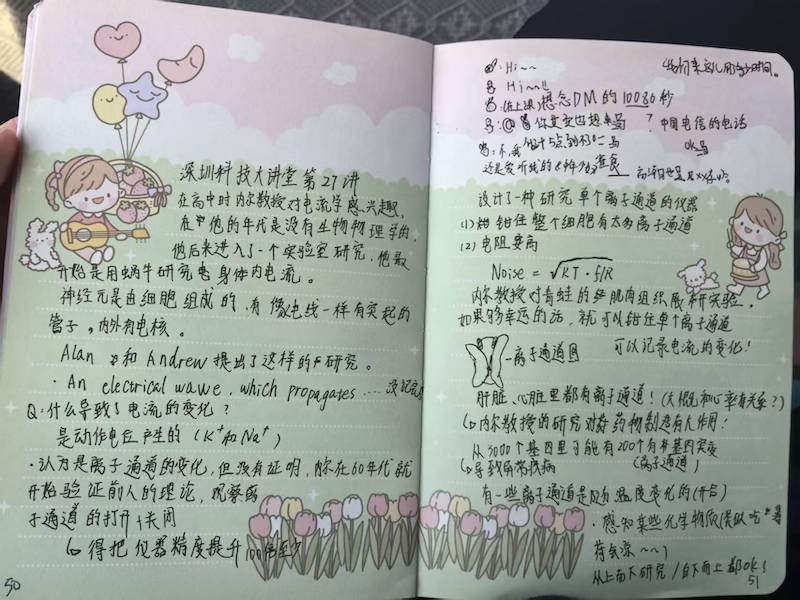 深圳科技大讲堂第27讲
在高中时内尔教授对电流学感兴趣,
在他的年代是没有生物物理学的,
他后来进入了一个实验室研究,他最
开始是用蜗牛研究身体内电流。
神经元是由细胞组成的,有像电线一样有突起的
管子,内外有电核。
Alan 和 Andrew 提出了这样的研究。
· An electrical wawe, which propagates ... 没记完
Q:什么导致了电流的变化?
是动作电位产生的(K⁺和Na⁺)
·认为是离子通道的变化,但没有证明,内尔在60年代就
开始验证前人的理论,观察离
子通道的打开+关闭
得把仪器精度提升100倍至少
50
Hi~~
Hi~!!
想念DM的10086秒
你变变也想
? 中国电信的电话
ok吗
设计了一种研究单个离子通道的仪器
(1) 钳住整个细胞有太多离子通道
(2) 电阻要高
Noise = √KT·f/R
内尔教授对青蛙的肌肉组织展开研究实验。
如果够幸运的话,就可以钳住单个离子通道
—离子通道图
可以记录电流的变化!
肝脏、心脏里都有离子通道!(大概和心率有关系?)
内尔教授的研究对药物制造有大作用!
从5000个基因里可能有200个有基因突变
导致疾病
(离子通道)
有一些离子通道是及有温度变化的(开合)
·感知某些化学物质(类似吃
荷气凉~~)
从上而下研究/自下而上都ok!
51